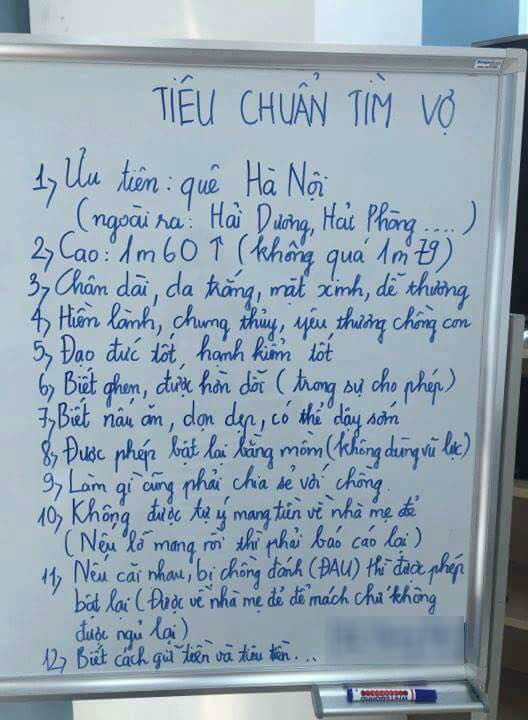 TIÊU CHUẨN TÌM VỢ
1, Ưu tiên: quê Hà Nội
(ngoài ra: Hải Dương, Hải Phòng....)
2, Cao: 1m60 ↑ (không quá 1m79)
3, Chân dài, da trắng, mặt xinh, dễ thương
4, Hiền lành, chung thủy, yêu thương chồng con
5, Đạo đức tốt, hạnh kiểm tốt
6, Biết ghen, được hờn dỗi (trong sự cho phép)
7, Biết nấu ăn, dọn dẹp, có thể dậy sớm
8, Được phép bật lại bằng mồm (không dùng vũ lực)
9, Làm gì cũng phải chia sẻ với chồng.
10, Không được tự ý mang tiền về nhà mẹ đẻ
(Nếu lỡ mang rồi thì phải báo cáo lại)
11, Nếu cãi nhau, bị chồng đánh (ĐAU) thì được phép
bật lại (Được về nhà mẹ đẻ để mách chứ không
được ngủ lại)
12, Biết cách giữ tiền và tiêu tiền...
WHITEBOARD